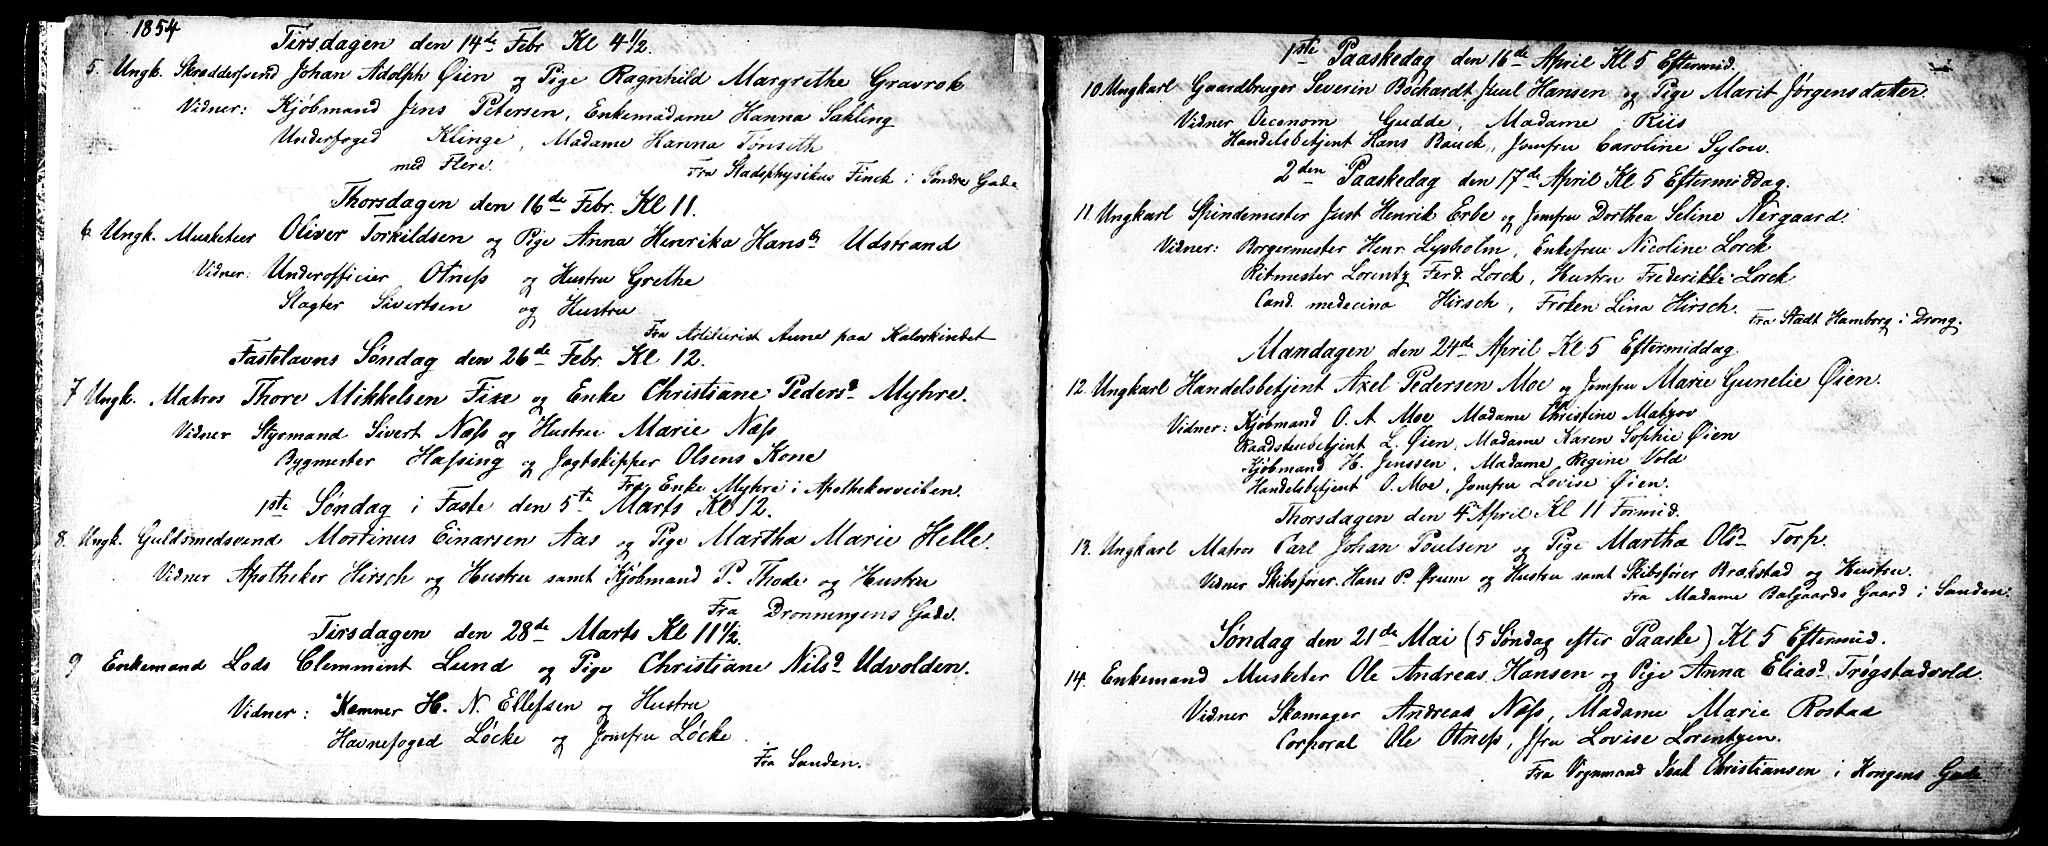 1854
Tirsdagen den 14de Febr Kl 4 1/2.
5. Ungk. Skrædersvend Johan Adolph Øien og Pige Ragnhild Margrethe Gravrok
Vidner: Kjøbmand Jens Petersen, Enkemadame Hanna Sahling
Underfoged Klinge, Madame Hanna Tønseth
med Flere.
Fra Stadsphysikus Finck i Søndre Gade
Thorsdagen den 16de Febr. Kl 11.
6 Ungk. Musketeer Oliver Torkildsen og Pige Anna Henrika Hansd. Udstrand
Vidner: Underofficier Otness og Hustru Grethe
Slagter Sivertsen og Hustru
Fra Artillerist Aune paa Kalvskindet
Fastelavns Søndag den 26de Febr. Kl 12.
7 Ungk. Matros Thore Mikkelsen Fixe og Enke Christiane Pedersd. Myhre.
Vidner Styrmand Sivert Næss og Hustru Marie Næss
Bygmester Hafsing og Jagtskipper Olsens Kone
Fra Enke Myhre i Apothekerveiten.
1ste Søndag i Faste den 5te Marts Kl 12.
8. Ungk. Guldsmedsvend Mortinus Einarsen Aas og Pige Martha Marie Helle.
Vidner Apotheker Hirsch og Hustru samt Kjøbmand P. Thode og Hustru
Fra Dronningens Gade.
Tirsdagen den 28de Marts Kl 11 1/2.
9 Enkemand Lods Clemmint Lund og Pige Christiane Nilsd. Udvolden.
Vidner: Kemner H. N. Ellefsen og Hustru
Havnefoged Løcke og Jomfru Løcke.
Fra Sanden.
1ste Paaskedag den 16de April Kl 5 Eftermid.
10 Ungkarl Gaardbruger Severin Bochardt Juul Hansen og Pige Marit Jørgensdatter.
Vidner Oeconom Gudde, Madame Riis
Handelsbetjent Hans Bauck, Jomfru Caroline Sylow.
2den Paaskedag den 17de April Kl 5 Eftermiddag.
11. Ungkarl Spindemester Just Henrik Erbe og Jomfru Dorthea Seline Nergaard.
Vidner: Borgermester Henr Lysholm, Enkefru Nicoline Lorck
Ritmester Lorentz Ferd. Lorck, Hustru Frederikke Lorck
Cand. medecina Hirsch, Frøken Lina Hirsch.
Fra Stadt Hamborg i Drong.
Mandagen den 24de April Kl 5 Eftermiddag.
12. Ungkarl Handelsbetjent Axel Pedersen Moe og Jomfru Marie Gunelie Øien.
Vidner: Kjøbmand O. A Moe Madame Christine Matzov
Raadstuebetjent L. Øien, Madame Karen Sophie Øien
Kjøbmand H. Jenssen, Madame Regine Vold
Handelsbetjent O. Moe, Jomfru Lovise Øien.
Thorsdagen den 4de April Kl 11 Formid.
13. Ungkarl Matros Carl Johan Poulsen og Pige Martha Olsd. Torp.
Vidner Skibsfører Hans P. Ørum og Hustru samt Skibsfører Brækstad og Hustru.
Fra Madame Balgaards Gaard i Sanden.
Søndag den 21de Mai (5 Søndag efter Paaske) Kl 5 Eftermid.
14. Enkemand Musketer Ole Andreas Hansen og Pige Anna Eliasd. Trøgstadvold
Vidner Skomager Andreas Næss, Madame Marie Rostad
Corporal Ole Otness, Jfru Lovise Lorentzen.
Fra Vognmand Christiansen i Kongens Gade